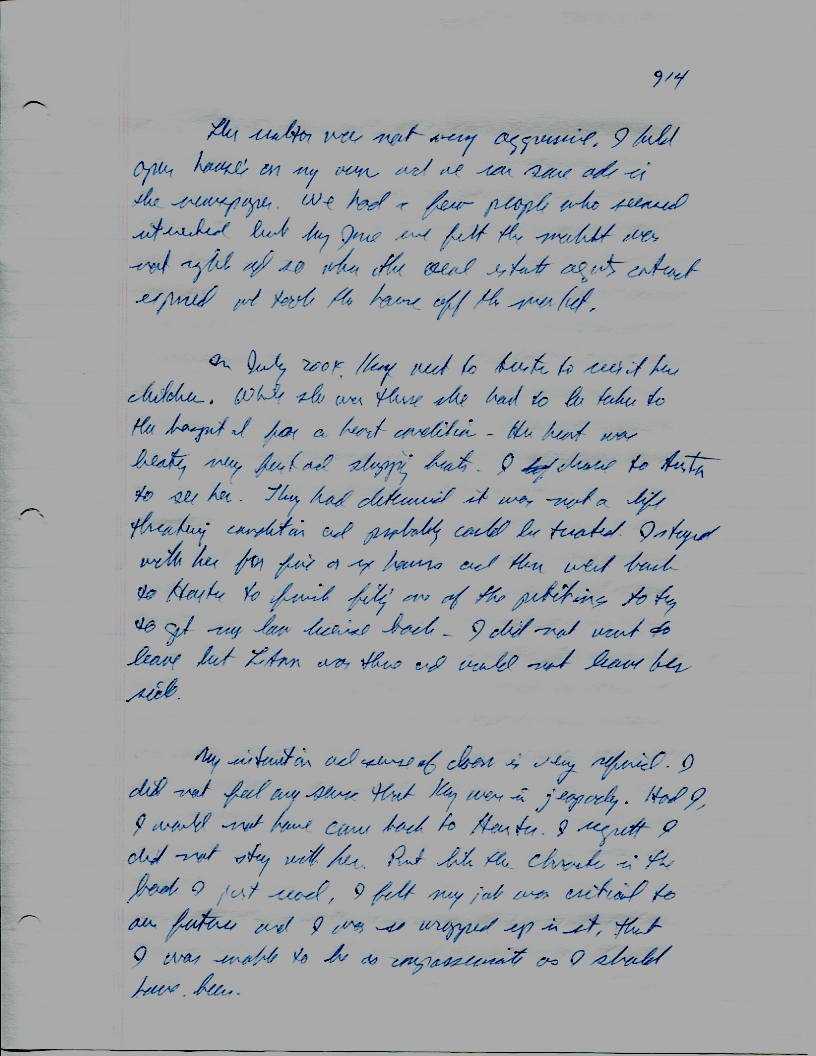 914
The realtor was not very aggressive. I held
open house's on my own and we ran some ads in
the newspaper. We had a few people who seemed
interested but by June we felt the market was
not right and so when the real estate agents contract
expired we took the house off the market.
In July 2004, Kay went to Austin to visit her
children. While she was there she had to be taken to
the hospital for a heart condition - Her heart was
beating very fast and skipping beats. I drove to Austin
to see her. They had determined it was not a life
threating condition and probably could be treated. I stayed
with her for five or six hours and then went back
to Houston to finish filing one of the petitions to try
to get my law license back - I did not want to
leave but LeAnn was there and would not leave her
side.
My intuition and sense of doom is very refined. I
did not feel any sense that Kay was in jeopardy. Had I,
I would not have came back to Houston. I regrett I
did not stay with her. But like the character in the
book I just read, I felt my job was critical to
our future and I was so wrapped up in it, that
I was unable to be as compassionate as I should
have been.